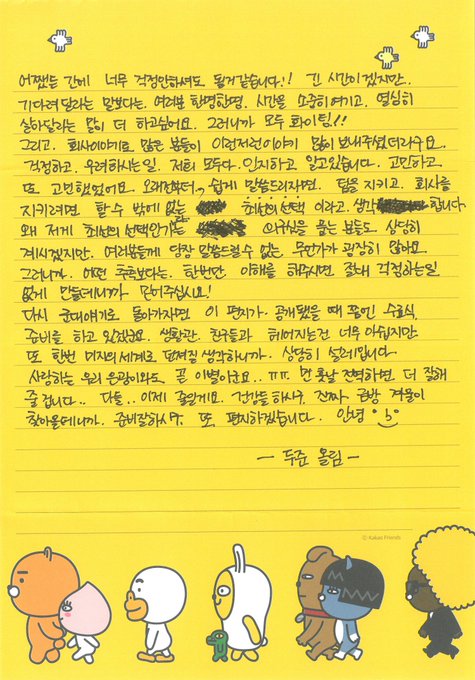 어쨌든 간에 너무 걱정안하셔도 될거같습니다!! 긴 시간이겠지만..
기다려달라는 말보다는, 여러분 한명한명, 시간을 소중히여기고, 열심히
살아달라는 말이 더 하고싶어요. 그러니까 모두 화이팅!!
그리고, 회사이야기로 많은 분들이 이런저런이야기 많이 보내주셨더라구요.
걱정하고, 우려하시는일, 저희 모두다 인지하고 알고있습니다. 고민하고
또 고민했었어요. 오래전부터.. 쉽게 말씀드리자면, 팀을 지키고, 회사를
지키려면 할 수 밖에 없는 최선의 선택 이라고, 생각 합니다.
왜 저게 최선의 선택인가는 의구심을 품는 분들도 상당히
계시겠지만, 여러분들께 당장 말씀드릴수 없는 무언가가 굉장히 많아요.
그러니까, 어떤 추측보다는, 한번만 이해를 해주시면 절대 걱정하는일
없게 만들테니까 믿어주십시요!
다시 군대얘기로 돌아가자면 이 편지가 공개됐을 때 쯤엔 수료식
준비를 하고 있겠군요. 생활관, 친구들과 헤어지는건 너무 아쉽지만
또 한번 미지의 세계로 던져질 생각하니까, 상당히 설레입니다.
사랑하는 우리 은평이와도 곧 이별이군요.. ㅠㅠ 먼 훗날 전역하면 더 잘해
줄 겁니다.. 다들.. 이제 줄일게요. 건강들 하시구, 진짜 금방 겨울이
찾아올테니까. 준비잘하시구, 또 편지하겠습니다. 안녕
- 두준 올림 -
© Kakao Friends